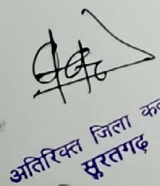 अतिरिक्त जिला
सूरतगढ